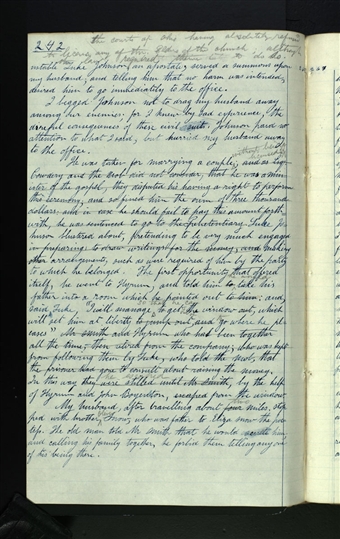 242
the courts of Ohio having decidedly refused
the license of any of the Elders of the church
stable Luke Johnson, an apostate, served a summons upon
my husband; and telling him that no harm was intended,
desired him to go immediately to the office.
I begged Johnson not to drag my husband away
among our enemies; for I knew by sad experience, the
dreadful consequences of these civil suits. Johnson paid no
attention to what I said, but hurried my husband away
to the office.
He was taken for marrying a couple; and as
Cowdery and the mob did not consider, that he was a min-
ister of the gospel, they disputed his having a right to perform
this ceremony, and so fined him the sum of three thousand
dollars; and in case he should fail to pay this amount forth-
with, he was sentenced to go to the penitentiary. Luke John-
son bustled about, pretending to be very much engaged
in preparing to draw writings for the money, and making
other arrangements, such as were required of him by the party
to which he belonged. The first opportunity that offered
itself, he went to Hyrum, and told him to take his
father into a room which he pointed out to him; and,
said Luke, "I will manage to get the window out, which
will set him at liberty to jump out, and go where he pl-
eases" Mr. Smith and Hyrum who had been together
all the time, then retired from the company; who was kept
from following them by Luke, who told the mob, that
the prisoner had gone to consult about raising the money.
In this way they were stilled until Mr. Smith, by the help
of Hyrum and John Boyenton, escaped from the window
My husband, after travelling about four miles, stop
ped with brother Snow, who was father to Eliza Snow the poe-
tess. The old man told Mr. Smith that he would him
and calling his family together, he forbid them telling any one
of his being there.